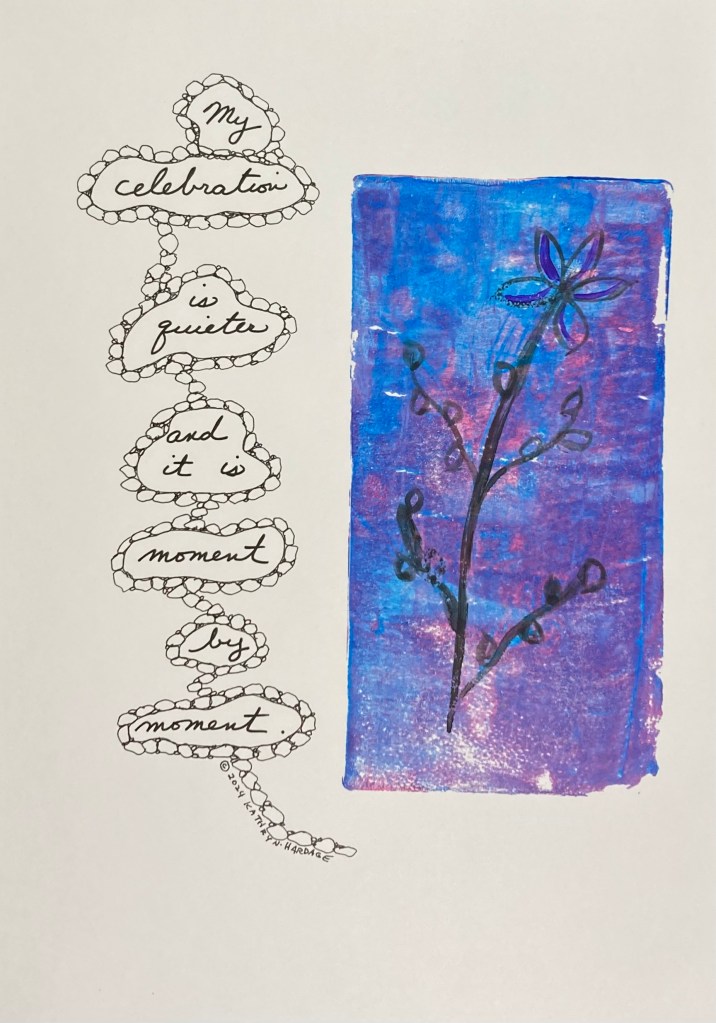 My
celebration
is
quieter
and
it is
moment
by
moment.
© 2024 KATHRYN. HARDAGE